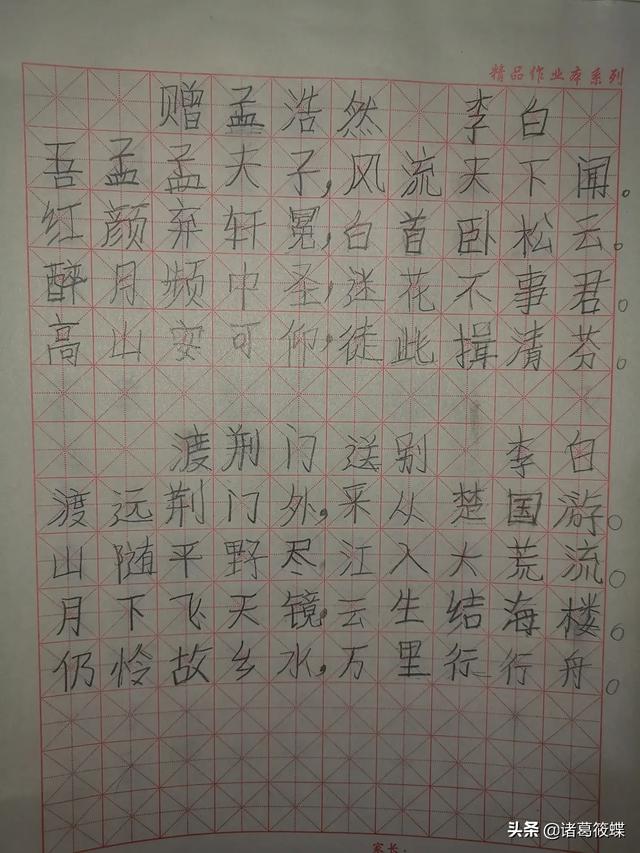 精品作业本系列
赠孟浩然 李白
吾孟孟夫子，风流天下闻。
红颜弃轩冕，白首卧松云。
醉月频中圣，迷花不事君。
高山安可仰，徒此揖清芬。
渡荆门送别 李白
渡远荆门外，来从楚国游。
山随平野尽，江入大荒流。
月下飞天镜，云生结海楼。
仍怜故乡水，万里行行舟。
家长：
头条 @诸葛筱蝶